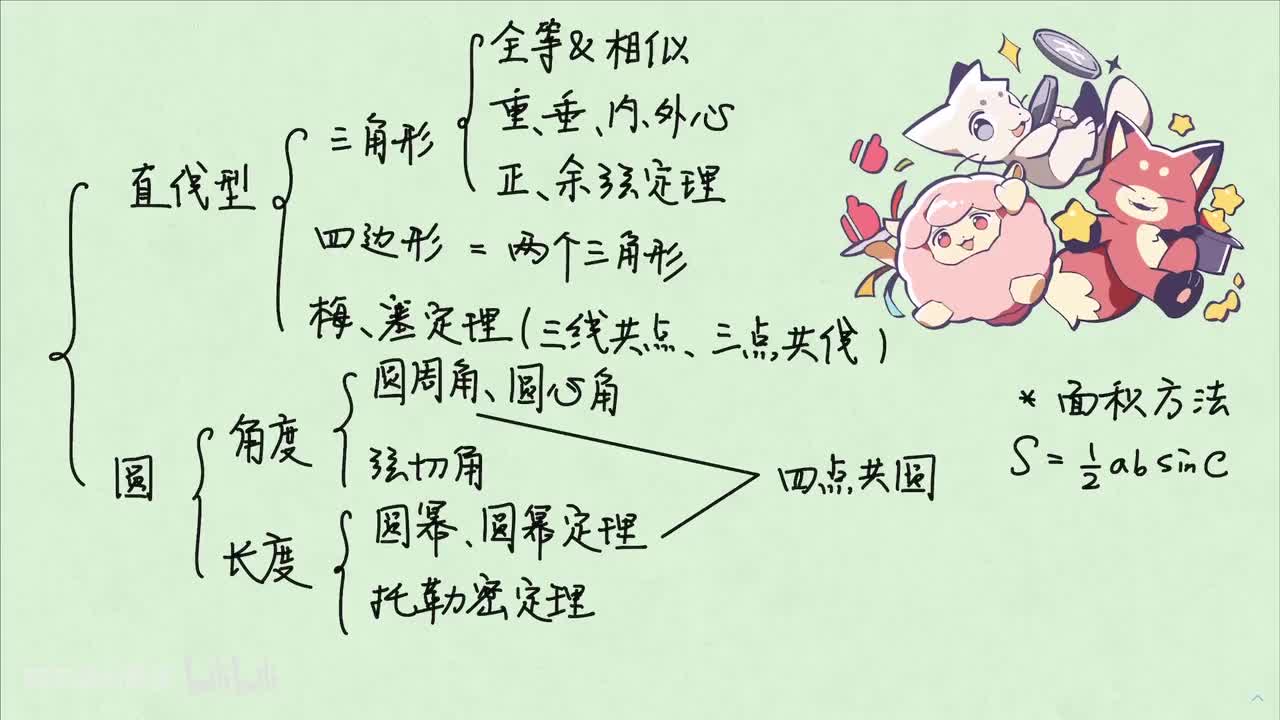 全等&相似
重、垂、内、外心
三角形
正、余弦定理
直伐型
四边形 = 两个三角形
梅、塞定理(三线共点、三点共伐)
圆周角、圆心角
* 面积方法
角度
弦切角
S = 1/2 ab sin C
圆
四点共圆
圆幂、圆幂定理
长度
托勒密定理
bilibili